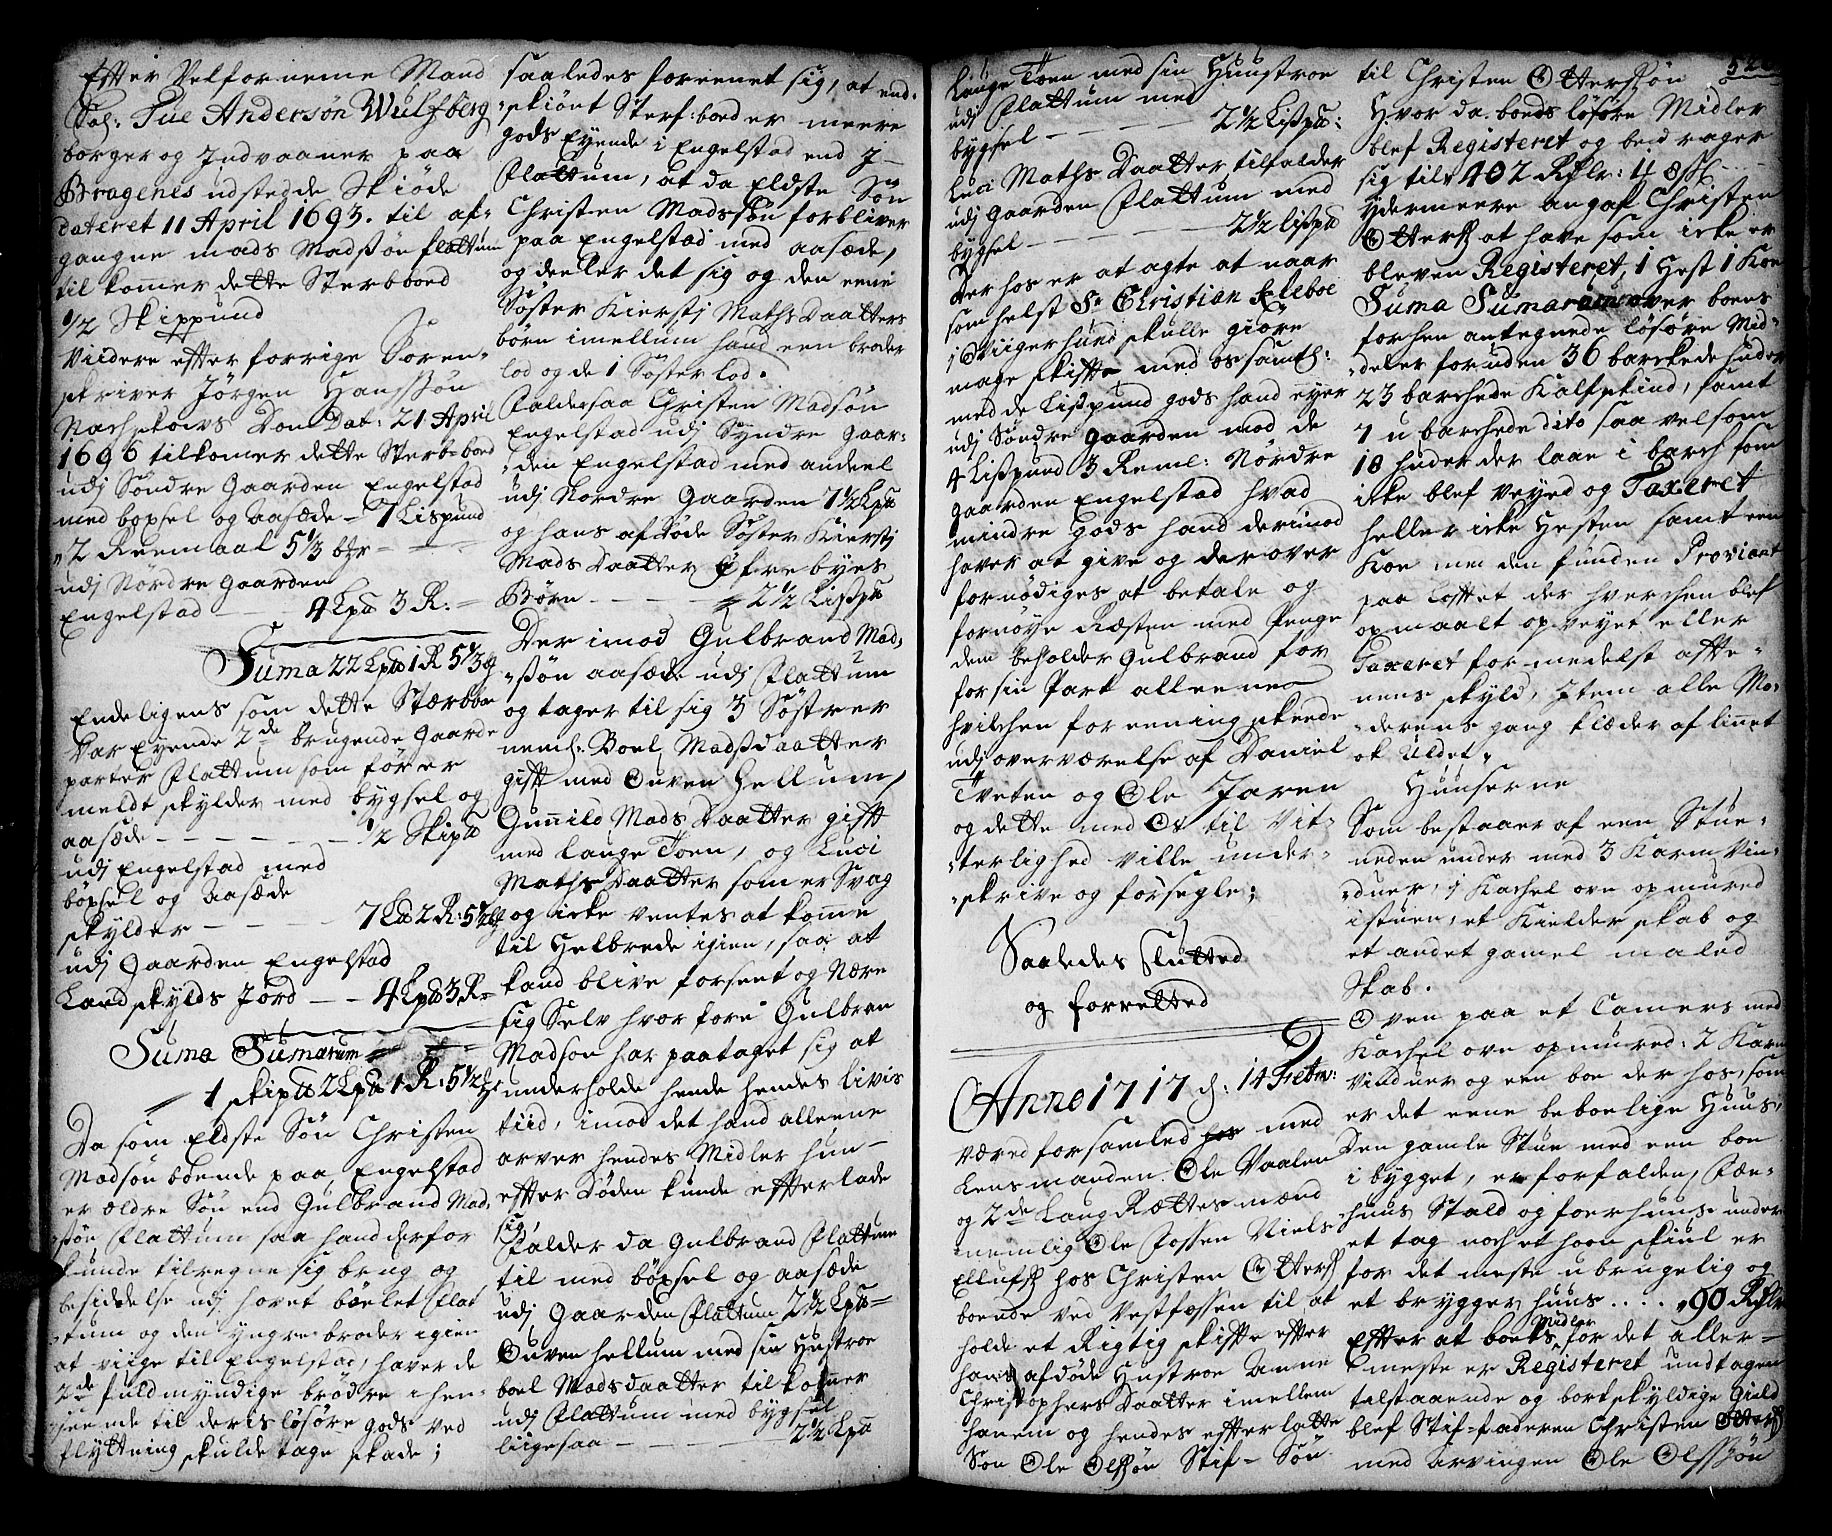 Efter Velforneme Mand
Sal: Tue Andersøn Wulfberg
borger og Indvaaner paa
Bragenes udstedde Skiøde
dateret 11 April 1693. til af-
gangne mads Madssøn flattum
tilkommer dette Sterbboed
1/2 Skippund
Viidere efter forrige Soren-
skriver Jørgen Hanssøn
Dat: 21 April
1696 tilkomer dette Sterb-boed
udj Søndre Gaarden Engelstad
med bøxsel og Aasæde - 7 Lispund
2 Reemaal 5 1/3 btr
udj Nørdre Gaarden
Engelstad - - 4 Lpd 3 R:
Suma 22 Lpd 1 R 5 1/3
Endeligens som dette Stærbboe
har Eyende 2de brugende Gaarde
parter Flattum som førre
meldt skylder med bygsel og
aasæde - - - 1/2 Skipd
udj Engelstad med
bøxsel og Aasæde
skylder - - - 7 Lpd 2 R: 5 1/2
udj Gaarden Engelstad
Landskylds Jord - - 4 Lpd 3 R
Suma Sumarum
1 skipd 2 Lpd 1 R: 5 1/2
Da som Eldste Søn Christen
Madsøn boende paa Engelstad
er ældre Søn end Gulbrand Mad-
søn Flattum saa hand derfor
kunde tilregne sig brug og
besiddelse udj hovet bøelet Flat
tum og den yngre broder igien
at viige til Engelstad, haver de
2de fuldmyndige brødre i hen-
seende til deris løsøre gods ved
flyttning skulde tage skade;
saaledes foreenet sig, at end-
skiønt Sterf: boed er meere
gods Eyende i Engelstad end J
Flattum, at da Eldste Søn
Christen Madssøn forbliver
paa Engelstad med aasæde,
og deeler det sig og den eene
Søster Kierstj Maths Daatters
børn imellum hand een broder
lod og de 1 Søster lod.
Falder saa Christen Madsøn
Engelstad udj Syndre Gaar-
den Engelstad med andeel
udj Nordre Gaarden 7 1/2 Lpd
og hans afdøde Søster Kierstj
Mads Daatter Øfrebyes
Børn - - - 2 1/2 Lispd
Der imod Gulbrand Mad-
søn aasæde udj Flattum
og tager til sig 3 Søstrer
neml: Boel Madsdaatter
gift med Ouven Hellum,
Gunnild Mads Daatter gift
med Lauge Toen, og Luci
Maths Daatter som er Svag
og icke ventes at komme
til Helbrede igien, saa at
kand blive forseent og Nære
sig Selv hvorfore Gulbran
Madsøn har paataget sig at
underholde hende hendes livis
tiid, imod det hand alleene
arver hendes Midler hun
efter Døden kunde efterlade
sig,
Falder da Gulbrand Flattum
til med bøxsel og aasæde
udj Gaarden Flattum 2 1/2 Lpd
Ouven hellum med sin Hustroe
boel Madsdaatter tilkommer
udj Flattum med bygsel
liigesaa - - - 2 1/2 Lpd
Lauge Toen med sin Huustroe
udj Flattum med
bygsel - - - 2 1/2 Lispd:
Luci Maths Daatter tilfalder
udj Gaarden Flattum med
bygsel - - - 2 1/2 lispd
Der hos er at agte at naar
somhelst Sr Christian Kleboe
i Eiger Sund skulle giøre
mageskifte med os samtl:
med de Lispund gods hand eyer
udj Søndre Gaarden mod de
4 Lispund 3 Reml: Nordre
Gaarden Engelstad hvad
mindre gods hand derimod
haver at give og derover
fornødiges at betale og
fornøye Resten med Penge
dem beholder Gulbrand for
for sin Part alleene
hvilcken foreening skeede
udj overværelse af Daniel
Tveten og Ole Jaren
og dette med Os til Vit-
terlighed ville under-
skrive og forsegle;
Saaledes Slutted
og forretted
Anno 1717 d: 14 Febr:
væred forsamled hos med
Lensmanden Ole Vaalen
og 2de Laug Rættesmænd
nemlig Ole Fossen Niels
Ellufs hos Christen Otters
boende ved Vestfossen til at
holde et Rigtig skifte efter
hans afdøde Hustroe Anne
Christophers Daatter imellem
hanem og hendes efterlatte
Søn Ole Olssøn Stif-Søn
52
til Christen Otterssøn
Hvor da boeds løsøre Midler
blef Registeret og bedrager
sig til 402 Rdlr: 4 8 s
ydermeere angaf Christen
Otters at have som icke er
bleven Registeret, 1 Hest 1 Koe
Suma Sumarum over boens
forhen antegnede løsøre Mid-
deler foruden 36 barckede huder
23 barchede Kalfskind, samt
7 u barchede dito saa velsom
18 huder der laae i barch som
icke blef veyed og Taxeret
heller icke Hesten samt een
Koe men den funden Proviant
paa Loftet der hverchen blef
opmaalt opveyet eller
Taxeret formedelst afte-
nens skyld, Item alle Mo-
derens gang klæder af linnet
ok Uldet,
Huuserne
Som bestaaer af een Stue
neden under med 3 Karm Vin-
duer, 1 Kachelove opmured
i stuen, et Kielder skab og
et andet gamel maled
Skab.
Oven paa et Camers med
Kachelove opmured: 2 Karm
Vinduer og een boe der hos, som
er det eene beboelige Huus,
Den gamle Stue med een boe
i bygget, er forfalden, Fæ-
huus Stald og foerhuus under
et tag noch et hoen skiul er
for det meste ubrugelig og
et brygger huus . . . . 90 Rdlr
Efter at boets Midler for det aller-
meste er Registeret undtagen
tilstaaende og bortskyldige Gield
blef Stif-faderen Christen Otters
med Arvingen Ole Olssøn